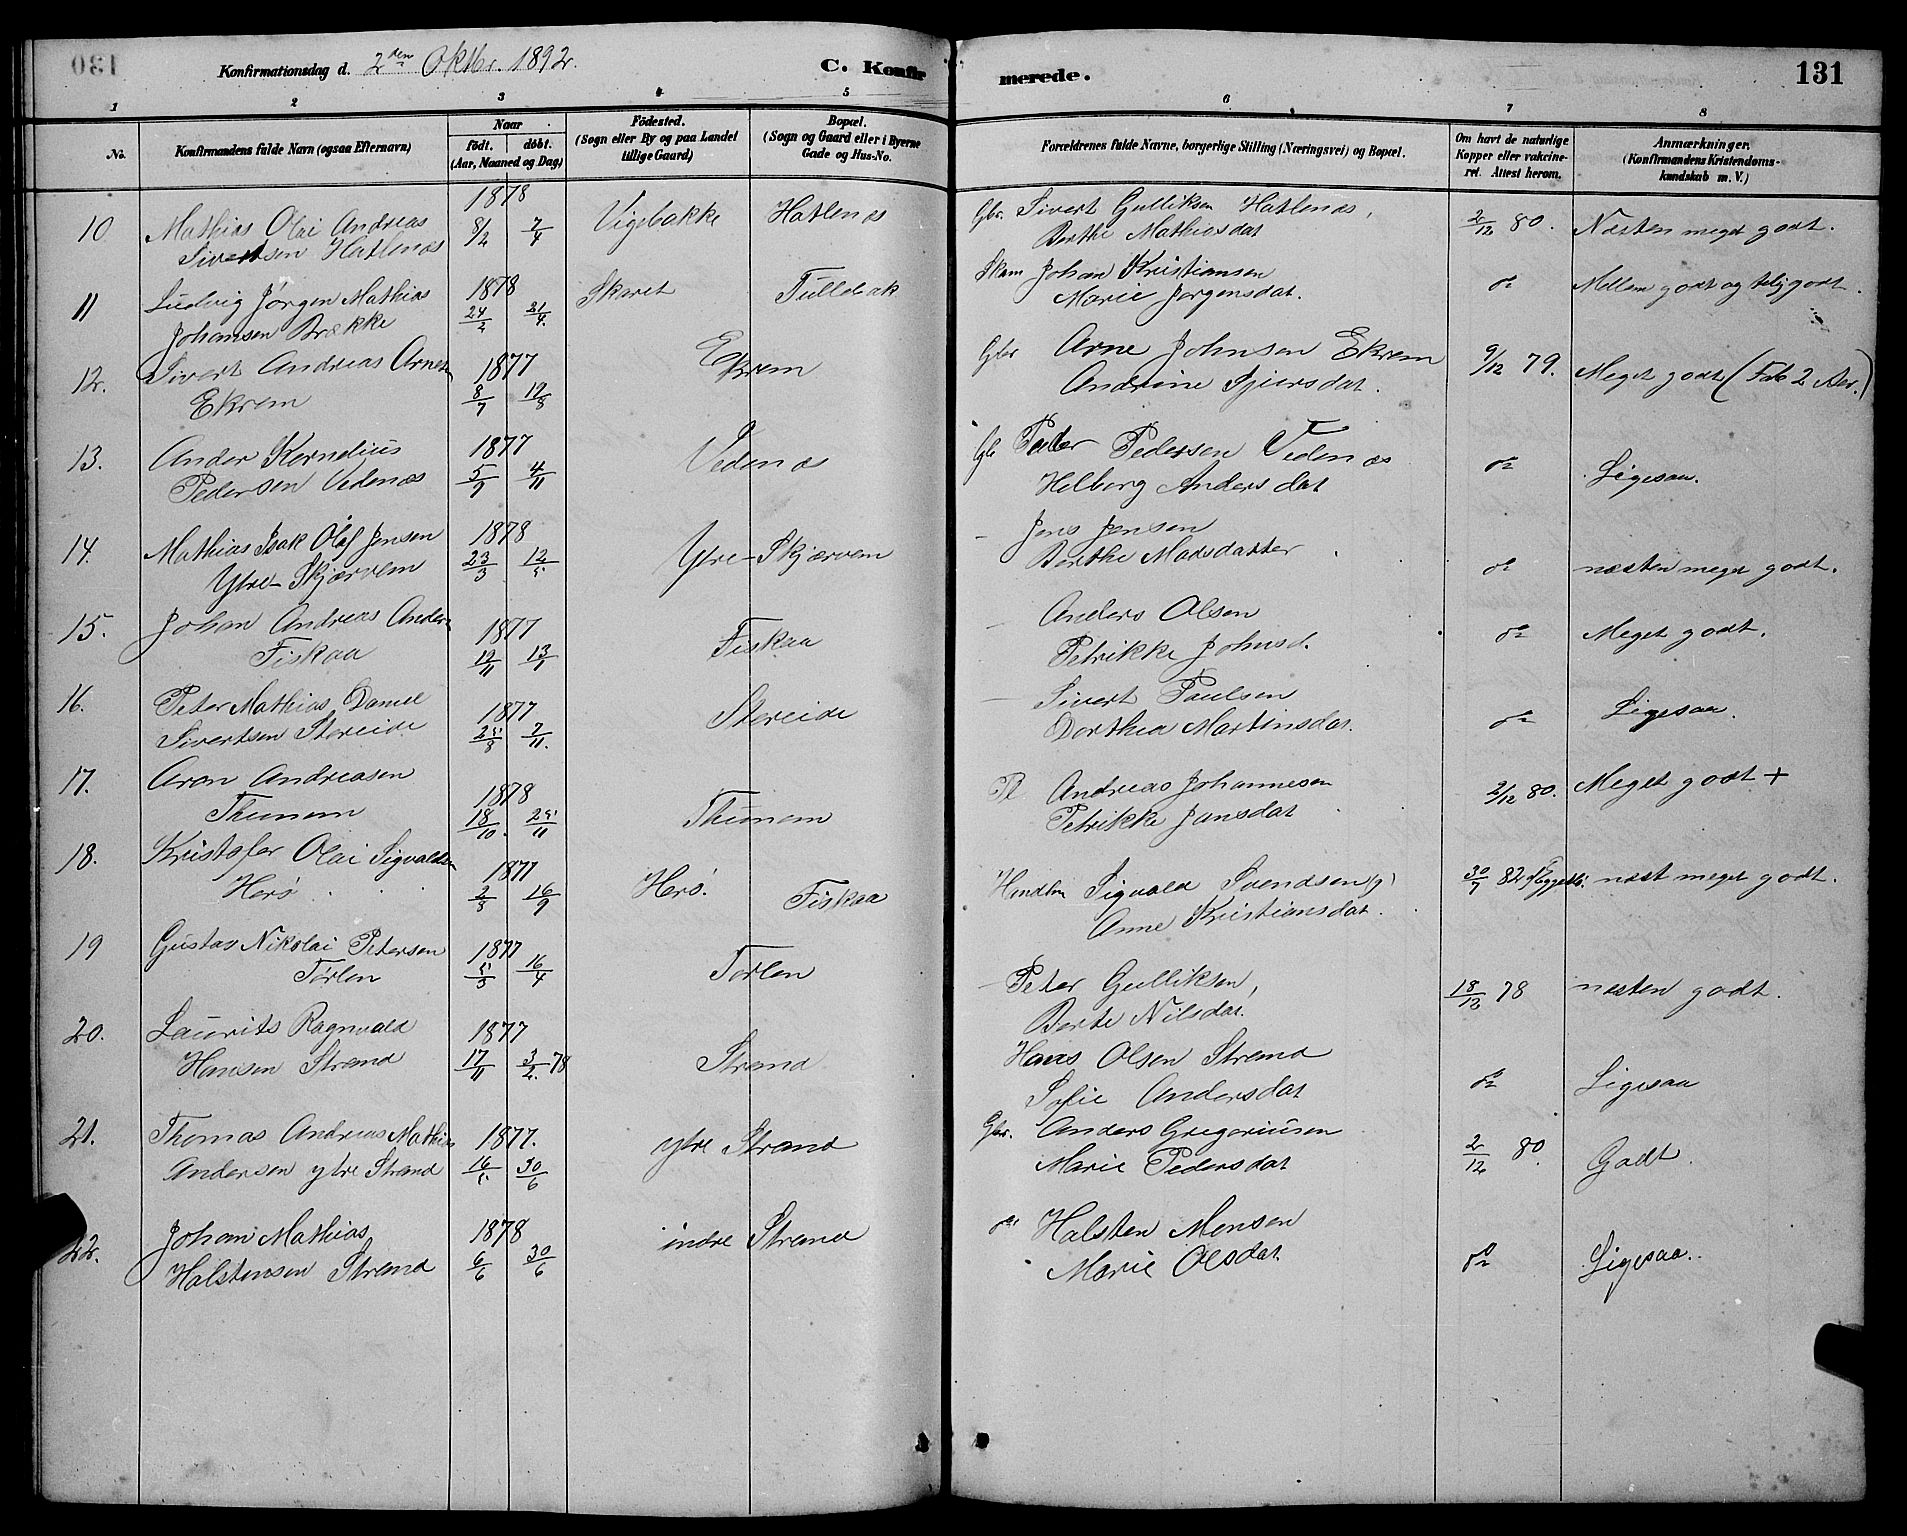 130
Konfirmationsdag d. 2den Oktbr. 1892.
C. Konfirmerede.
131
1 2 3 4 5 6 7 8
No.
Konfirmandens fulde Navn (ogsaa Efternavn)
Naar
födt. döbt.
(Aar, Maaned og Dag)
Födested.
(Sogn eller By og paa Landet
tillige Gaard)
Bopæl.
(Sogn og Gaard eller i Byerne
Gade og Hus-No.
Forældrenes fulde Navne, borgerlige Stilling (Næringsvei) og Bopæl.
Om havt de naturlige
Kopper eller vakcine-
ret. Attest herom.
Anmærkninger.
(Konfirmandens Kristendoms-
kundskab m. V.)
10 Mathias Olai Andreas
Sivertsen Hatlenæs
1878
8/2 7/4
Vigebakke Hatlenæs
Gbr. Sivert Gulliksen Hatlenæs,
Berthe Mathiasdat
2/12 80. Næsten meget godt.
11 Ludvig Jørgen Mathias
Johansen Brække
1878
24/2 21/4.
Skaret Tullebak
Johan Kristiansen
Marie Jørgensdat.
do Mellem godt og telj godt.
12. Sivert Andreas Arnes
Ekrem
1877
8/7 19/8
Ekrem
Gbr Arne Johnsen Ekrem
Andrine Sjursdat.
9/12 79. Meget godt (Fab 2 Aar.)
13. Ander Kornelius
Pedersen Vedenæs
1877
5/9 4/11
Vedenæs
Gb Peder Pedersen Vedenæs
Helborg Andersdat
do Ligesaa.
14. Mathias Isak Olaf Jensen
Ytre-Skjærvem
1878
23/3 12/5
Ytre-Skjærvem
- Jens Jensen
Berthe Madsdatter.
do næsten meget godt.
15. Johan Andreas Anders
Fiskaa
1877
19/11 13/1
Fiskaa
- Anders Olsen
Petrikke Johnsd.
do Meget godt.
16. Peter Mathias Daniel
Sivertsen Storeide
1877
25/8 2/11.
Storeide
- Sivert Paulsen
Dorthea Martinsdat.
do Ligesaa.
17. Aron Andreasen
Thunem
1878
18/10. 25/11
Thunem
Pl Andreas Johannesen
Petrikke Jansdat
2/12 80. Meget godt +
18. Kristofer Olai Sigvaldsen
Herö
1877
2/3 16/9
Herö. Fiskaa
Handlm Sigvald Svendsen
Anne Kristiansdat.
30/7 82 næst meget godt.
19 Gustav Nikolai Petersen
Tørlen
1877
5/3 16/4
Torlen
- Peter Gulliksen,
Berte Nilsdat.
18/12 78 næsten godt.
20. Laurits Ragnvald
Hansen Strand
1877
17/11 3/2. 78
Strand
Hans Olsen Strand
Sofie Andersdat
do Ligesaa
21. Thomas Andreas Mathias
Andersen ytre Strand
1877.
16/5 30/6
ytre Strand
Gbr. Anders Gregoriusen
Marie Pedersdat
2/12 80. Godt.
22. Johan Mathias
Halstensen Strand
1878
6/6 30/6
indre Strand
do Halsten Monsen
Marie Olsdat
do Ligesaa.